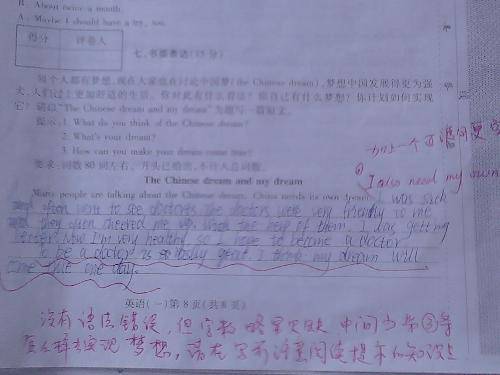 B. About twice a month.
A. Maybe I should have a try, too.
得分 评卷人
七、书面表达(15分)
每个人都有梦想,现在大家也在讨论中国梦(the Chinese dream),梦想中国发展得更为强
大,人们过上更加舒适的生活。你对此有什么看法?你自己有什么梦想?你计划如何实现
它?请以"The Chinese dream and my dream"为题写一篇短文。
提示:1. What do you think of the Chinese dream?
2. What's your dream?
3. How can you make your dream come true?
要求:词数80词左右,开头已给出,不计入总词数。
The Chinese dream and my dream
Many people are talking about the Chinese dream. China needs its own dream. I was sick
often went to see doctors. The doctors were very friendly to me
they often cheered me up. With the help of them, I was getting
better. Now I'm very healthy, so I hope to become a doctor
To be a doctor is really great. I think my dream will
come true one day.
加上一个可
I also need my own
英语(一)第8页(共8页)
没有语法错误,但字数略显欠缺 中间少第③
实现梦想,请在写前注意阅读提示和知识点